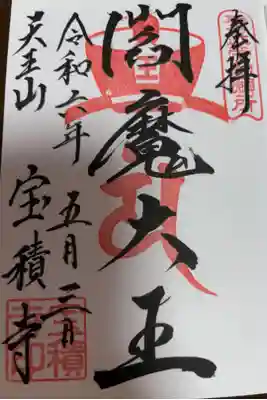 奉拝
閻魔大王
令和六年五月三日
天王山
宝積寺